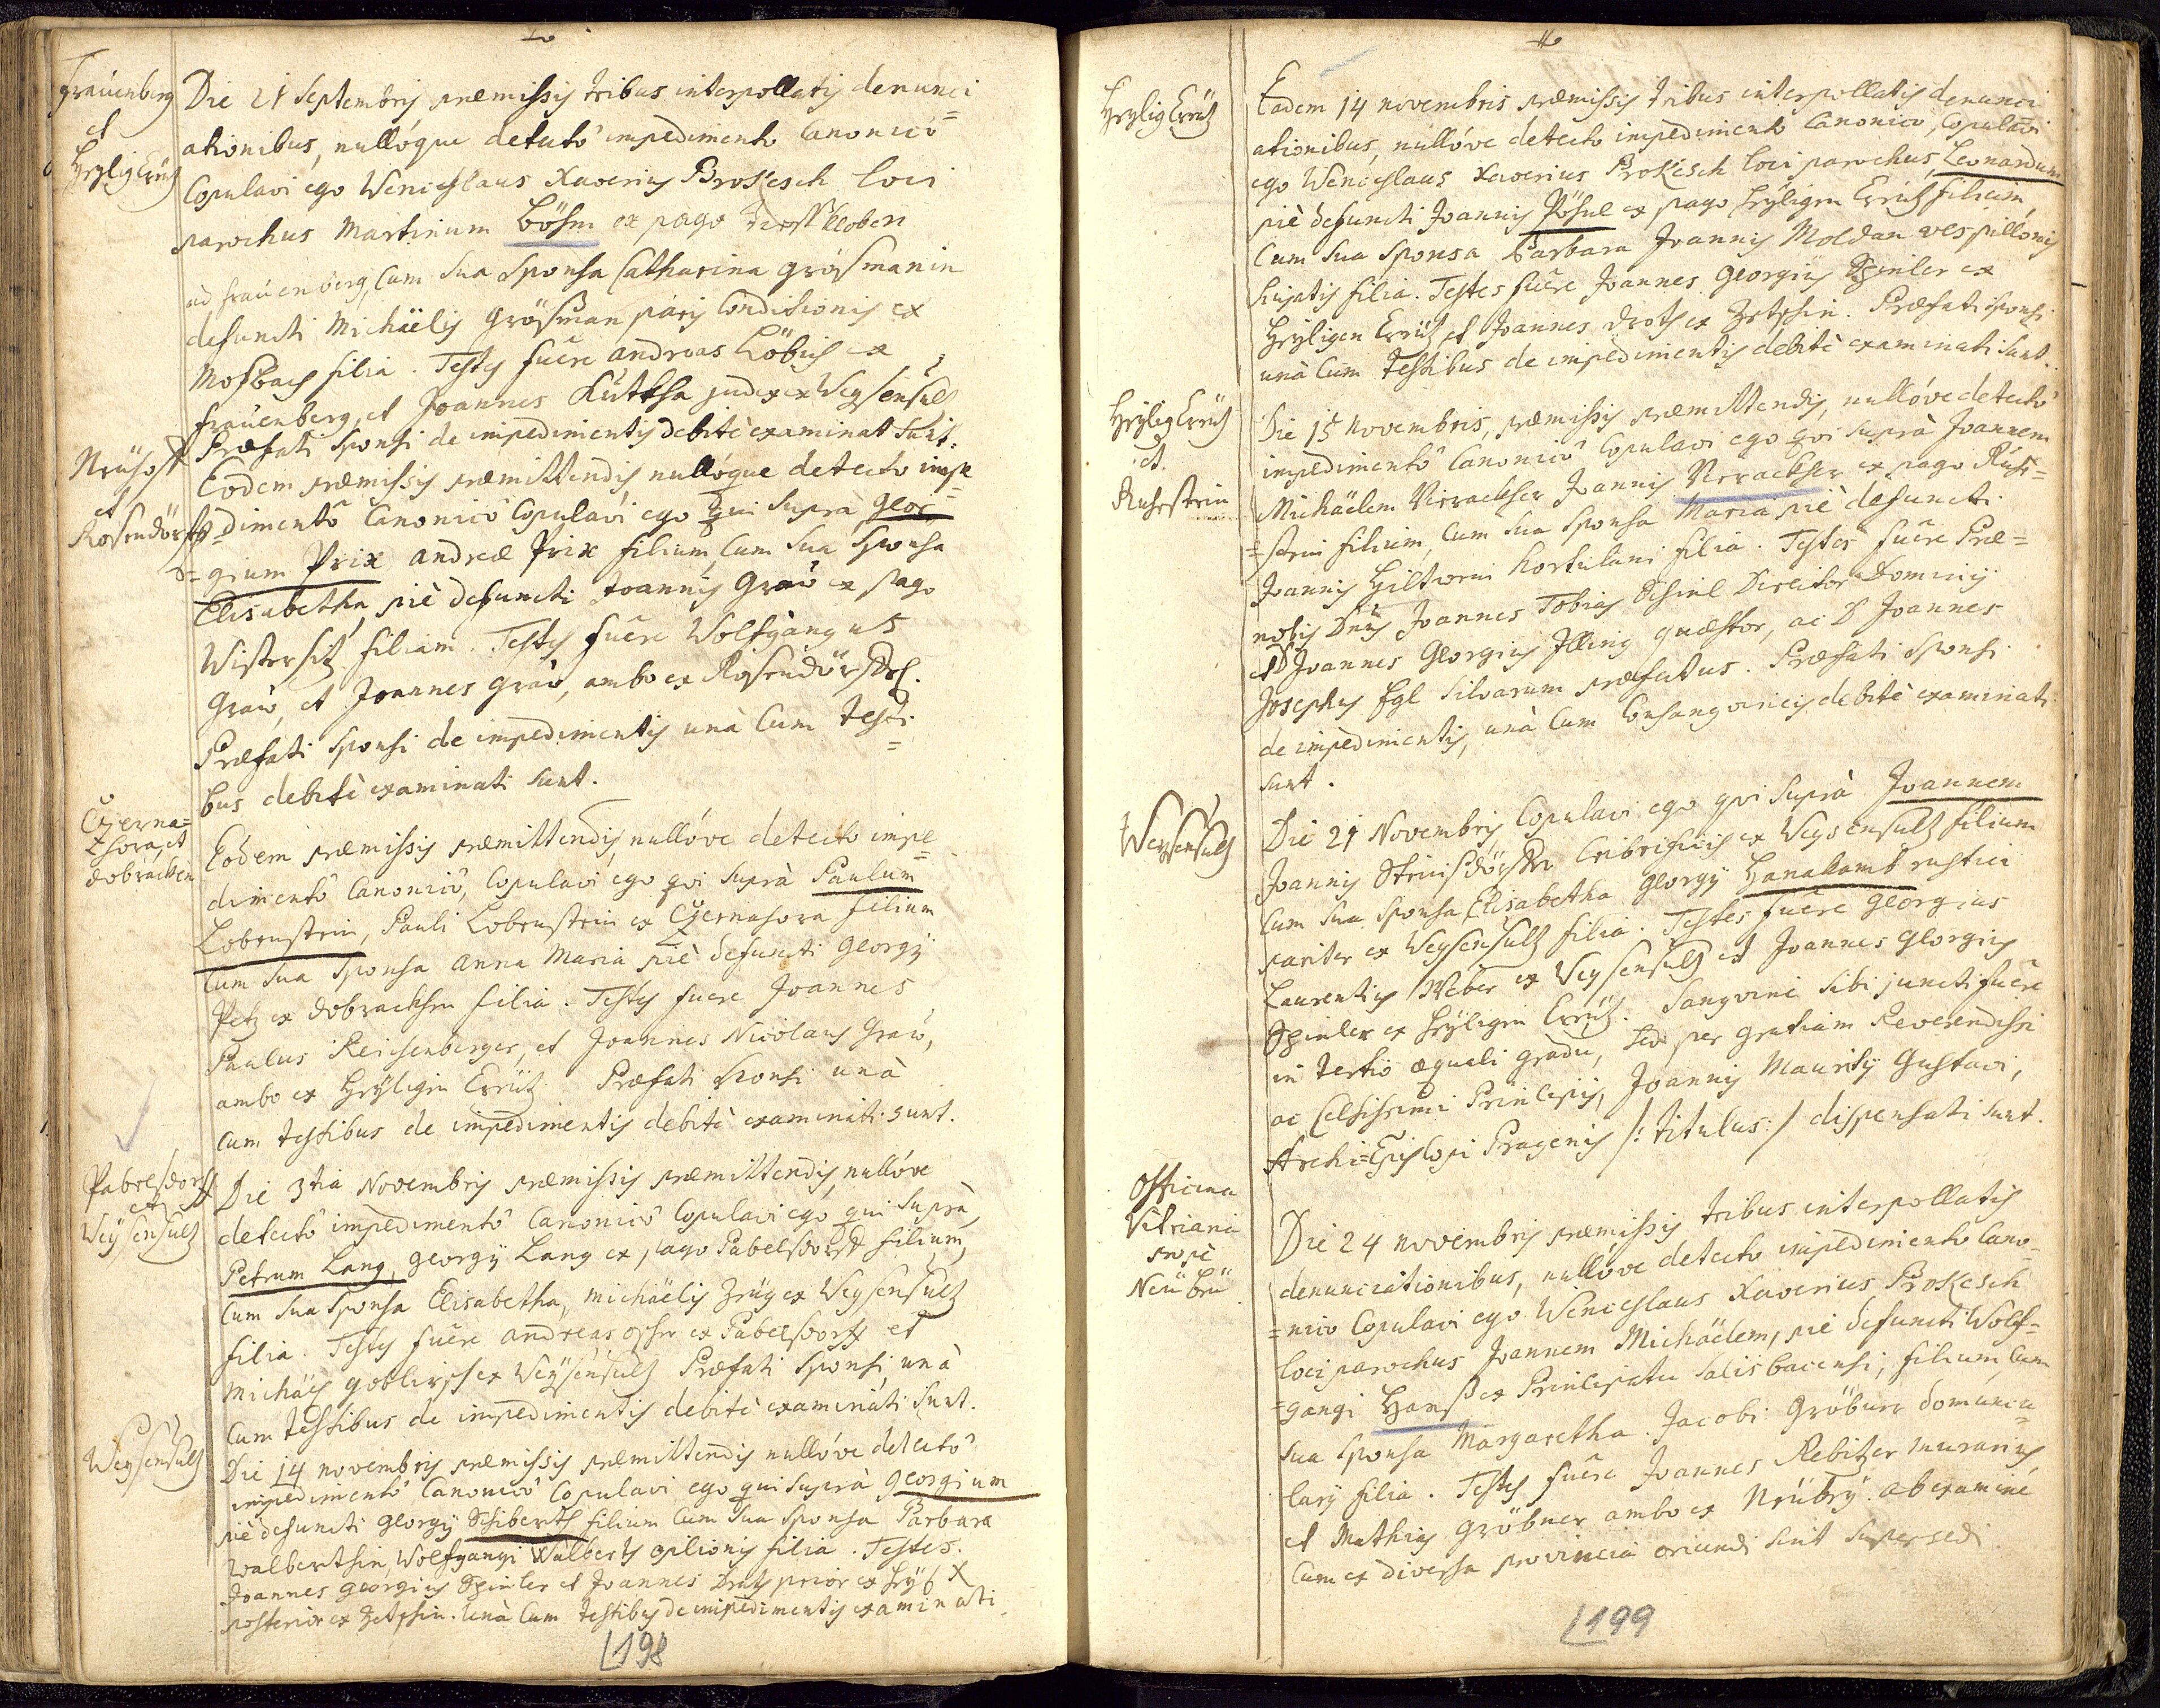 Frauenberg
et
HeyligCreütz
Die 21 Septembris præmissis tribus interpollatis denunci=
ationibus, nullóque detectô impedimento Canonicô
Copulavi ego Wenceslaus Xaverius Prokesch loci
parochus Martinum Böhm ex pago
ad Frauenberg, Cum sua Sponsa Catharina Grösmanin
defuncti Michäelis Grösman páris Conditionis ex
Mosbach filia. Testes fuêre Andreas Löbich ex
Frauenberg, et Joannes judex ex Weysensultz
Præfati Sponsi de impedimentis debitè examinati Sunt.
Neühoff
et
Rosendörff
Eodem præmissis præmittendis nullóque detecto impe=
dimentô Canonicô Copulavi ego qui supra Geor=
gium Prix Andreæ Prix filium, Cum sua Sponsa
Elisabetha, piè defuncti Joannis Graw ex pago
Wistersitz filiam. Testes fuêre Wolfgangus
Graw, et Joannes Graw, ambo ex Rosendörffel.
Præfati Sponsi de impedimentis unà Cum testi=
bus debitè examinati sunt.
Czerna=
hora, et
Dobracken
Eodem præmissis præmittendis, nullóve detecto impe=
dimentô Canonicô, Copulavi ego qvi suprà Paulum
Lobenstein, Pauli Lobenstein ex Czernahora filium
Cum sua Sponsa Anna Maria piè defuncti Georgÿ
Petz ex Dobracken filia. Testes fuere Joannes
Paulus Reichenberger, et Joannes Nicolaus Graw,
ambo ex Heyligen Creütz. Præfati Sponsi unà
Cum testibus de impedimentis debitè examinati sunt.
Pabelsdorff
et
Weysensultz
Die 3tia Novembris præmissis præmittendis, nullóve
detectô impedimentô Canonicô Copulavi ego qui suprà,
Petrum Lang, Georgÿ Lang ex pago Pabelsdorff filium,
Cum sua Sponsa Elisabetha, Michäelis Zrüg ex Weysensultz
filia. Testes fuêre Andreas ex Pabelsdorff et
Michäel Goblirsch ex Weysensultz Præfati Sponsi, unà
Cum testibus de impedimentis debitè examinati sunt.
Weysensultz
Die 14 Novembris præmissis præmittendis nullóve detectô
impedimentô Canonicô Copulavi ego qui suprà Georgium
piè defuncti Georgÿ Schiberth filium Cum sua Sponsa Barbara
Walberthin, Wolfgangi Walberth opilionis filia. Testes.
Joannes Georgius Spinler et Joannes Droth prior ex Heyl: X
posterior ex Zetschin. unà Cum testibus de impedimentis examinati
198
HeyligCreütz
Eadem 14 Novembris præmissis tribus interpollatis denunci
ationibus, nullóve detecto impedimento Canonico, Copulavi
ego Wenceslaus Xaverius Prokesch loci parochus, Leonardum
piè defuncti Joannis Pösnel ex pago Heyligen Creütz filium,
Cum sua Sponsa Barbara Joannis Moldan vespillonis
hujatis filia. Testes fuêre Joannes Georgius Spinler ex
Heyligen Creütz et Joannes Droth ex Zetschin. Præfati Sponsi
unà Cum testibus de impedimentis debitè examinati sunt.
HeyligCreütz
et
Ruhestein
Die 15 Novembris, præmissis præmittendis, nullóve detectô
impedimentô Canonicô Copulavi ego qvi suprà Joannem
Michäelem Joannis ex pago Ruhe=
=stein filium, Cum sua Sponsa Maria piè defuncti
Joannis Hiltwein hortulani filia. Testes fuêre Præ=
nobilis Dnus Joannes Tobias Director Dominÿ
et D Joannes Georgius Illing quæstor, ac D Joannes
Josephus Egl Silvarum præfectus. Præfati Sponsi
de impedimentis, unà Cum Consangvineis debitè examinati
sunt.
Weysensultz
Die 21 Novembris Copulavi ego qvi Suprà Joannem
Joannis Steinsdörffer Cribrificis ex Weysensultz filium
Cum sua Sponsa Elisabetha Georgÿ Hanakamb rustici
pariter ex Weysensultz filia. Testes fuêre Georgius
Laurentius Weber ex Weysensultz et Joannes Georgius
Spinler ex Heyligen Creütz. Sangvine sibi juncti fuêre
in tertio æquali gradu, sed per gratiam Reverendissi
ac Celsissimi Principis, Joannis Mauritÿ Gustavi,
Archi=Episcopi Pragensis /: titulus :/ dispensati sunt.
Officina
Vitriaria
prope
Neü brü
Die 24 Novembris præmissis tribus interpollatis
denunciationibus, nullóve detecto impedimento Cano=
=nico Copulavi ego Wenceslaus Xaverius Prokesch
loci parochus Joannem Michäelem, piè defuncti Wolf=
=gangi Hanss ex Principatu Salisbacensi, filium, Cum
sua Sponsa Margaretha. Jacobi Gröbner domuncu=
larÿ filia. Testes fuêre Joannes Rebitzer murarius
et Mathias Gröbner ambo ex Neübrÿ. ab examine
Cum ex diversa provincia oriundi sint supersedi
199